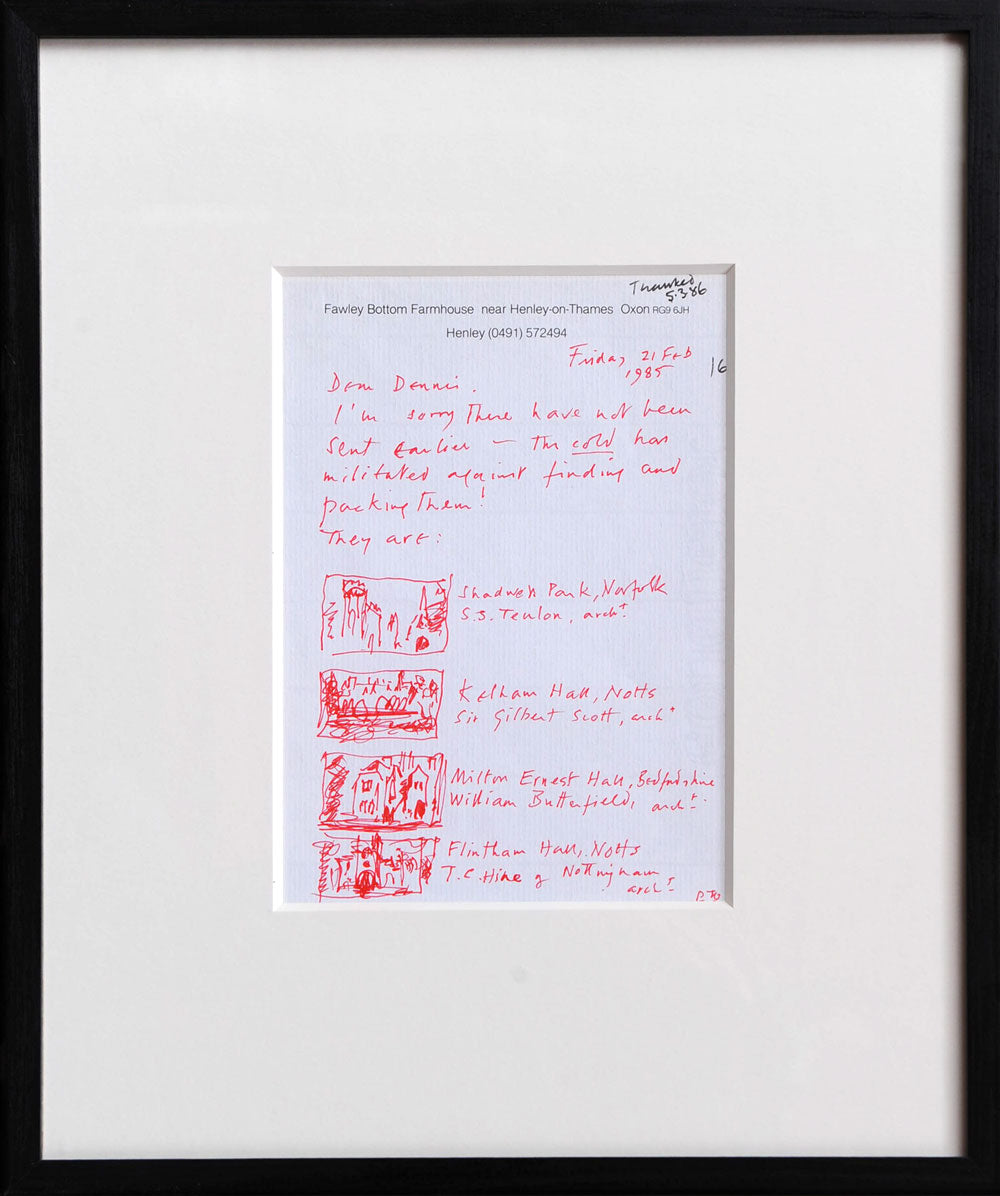 Thanked
5.3.86
Fawley Bottom Farmhouse near Henley-on-Thames Oxon RG9 6JH
Henley (0491) 572494
Friday 21 Feb
1985
16
Dear Dennis.
I'm sorry these have not been
sent earlier — the cold has
militated against finding and
packing them!
They are:
Shadwell Park, Norfolk
S.S. Teulon, archt.
Kelham Hall, Notts
Sir Gilbert Scott, archt
Milton Ernest Hall, Bedfordshire
William Butterfield, archt.
Flintham Hall, Notts
T.C. Hine of Nottingham
archt